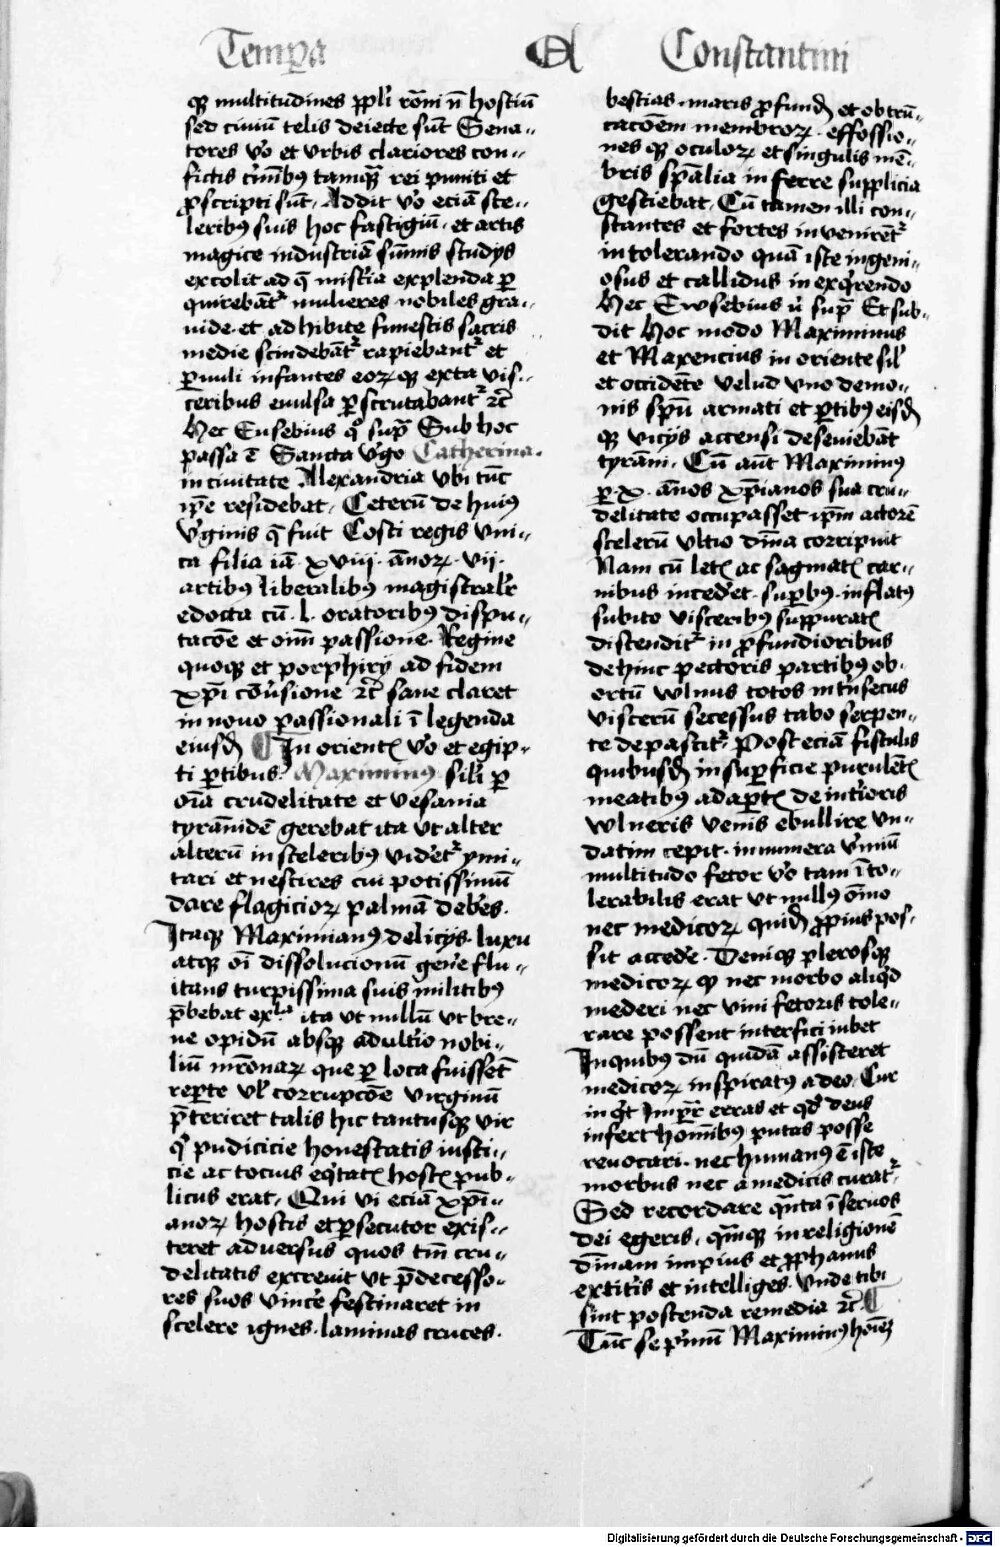 Tempa A Constantini
qz multitudines ppl'i rōni nō hostiū
sed ciuiū telis deiecte sūt Sena-
tores vo et vrbis clariores con-
fictis cimībus tamqz rei puniti et
pscripti sūt. Addit vo eciā sce-
leribus suis hoc fastigiū et artis
magice industriā sūmis studys
excolit ad q̄ mistīa explenda p
quirebāt mulieres nobiles gra-
uide et adhibite funestis sacris
medie scindebāt rapiebant et
puuli infantes eoꝝqz exta vis-
ceribus euulsa pscrutabant rc̄
Hec Eusebius q° supra Sub hoc
passa ē Sancta vgo Catherina.
in ciuitate Alexandria vbi tūc
ipē residebat. Ceterū de huiꝰ
vginis q̄ fuit Costi regis vni-
ca filia iā xviij. annoꝝ. vij.
artibus liberalibus magistralr
edocta cū .l. oratoribus dispu-
tacōe et oīm passione. Regine
quoqz et porphirij ad fidem
xpi cōuersione rc̄ sane claret
in nouo passionali ī legenda
eiusd ¶ In oriente vo et egip-
ti ptibus Maximinus sili p
oīa crudelitate et vesania
tyrānidē gerebat ita vt alter
alterū in sceleribus videret ymi-
tari et nescires cui potissimū
dare flagicioꝝ palmā debes.
Itaqz Maximianꝰ delicijs luxu
atqz oi dissolucionū genere flu-
itans turpissima suis militibꝰ
p̄bebat exla ita vt nullū vt bre-
ue opidū absqz adulterio nobi-
liū mronaꝝ que p loca fuissēt
repte vl' corrupcōe virginū
p̄teriret talis hic tantusqz vir
q° pudicicie honestatis iusti-
cie ac tocius eqtatis hostis pub-
licus erat. Qui vi eciā xpi-
anoꝝ hostis et psecutor exis-
teret aduersus quos tm̄ cru-
delitatis excreuit vt p̄decesso-
res suos vincere festinaret in
scelere ignes. laminas cruces.
bestias. maris pfundū et obtrū-
cacōem membroꝝ. effossio-
nes qz oculoꝝ et singulis mē-
bris spālia inferre supplicia
gestiebat. Cū tamen illi con-
stantes et fortes inuenirēt
in tolerando quā iste ingeni-
osus et callidus in exqrendo
Hec Ewsebius v' supra Et sub-
dit hoc modo Maximinus
et Maxencius in oriente sil'
et occidēte velud vno demo-
nis spū armati et ptibus eisd
qz vicijs accensi deseuiebāt
tyrāni. Cū aūt Maximinꝰ
p x. ānos xpianos sua cru-
delitate occupasset ipm̄ actorē
scelerū vltio diuina corripuit
Nam cū letis ac saginatis car-
nibus incederet supbꝰ. inflatꝰ
subito visceribus suppuratis
distendit in pfundioribus
dehinc pectoris partibus ob-
ortū wlnus totos intrinsecus
viscerū secessus tabo serpen-
te depascit. Post eciā fistulis
quibusd in supficie purulētis
meatibus adaptis de intioris
wlneris venis ebullire vn-
datim cepit. innumera vermiū
multitudo fetor vo tam īto-
lerabilis erat vt nullꝰ oīno
nec medicoꝝ quidē ppius pos-
sit accedere. Deniqz plerosqz
medicoꝝ qz nec morbo aliqd
mederi nec vim fetoris tole-
rare possent interfici iubet
In quibus dū quidā assisteret
medicoꝝ inspiratꝰ a deo. Cur
inqt Imper erras et qd deus
infert hominibus putas posse
reuocari. nec humanꝰ ē iste
morbus nec a medicis curat
Sed recordare qnta ī seruos
dei egeris. qmqz in religionē
diuinam impius et pphanus
extitis et intelliges. vnde tibi
sint poscenda remedia rc̄ ¶
Tūc se pmū Maximinꝰ hoiēz